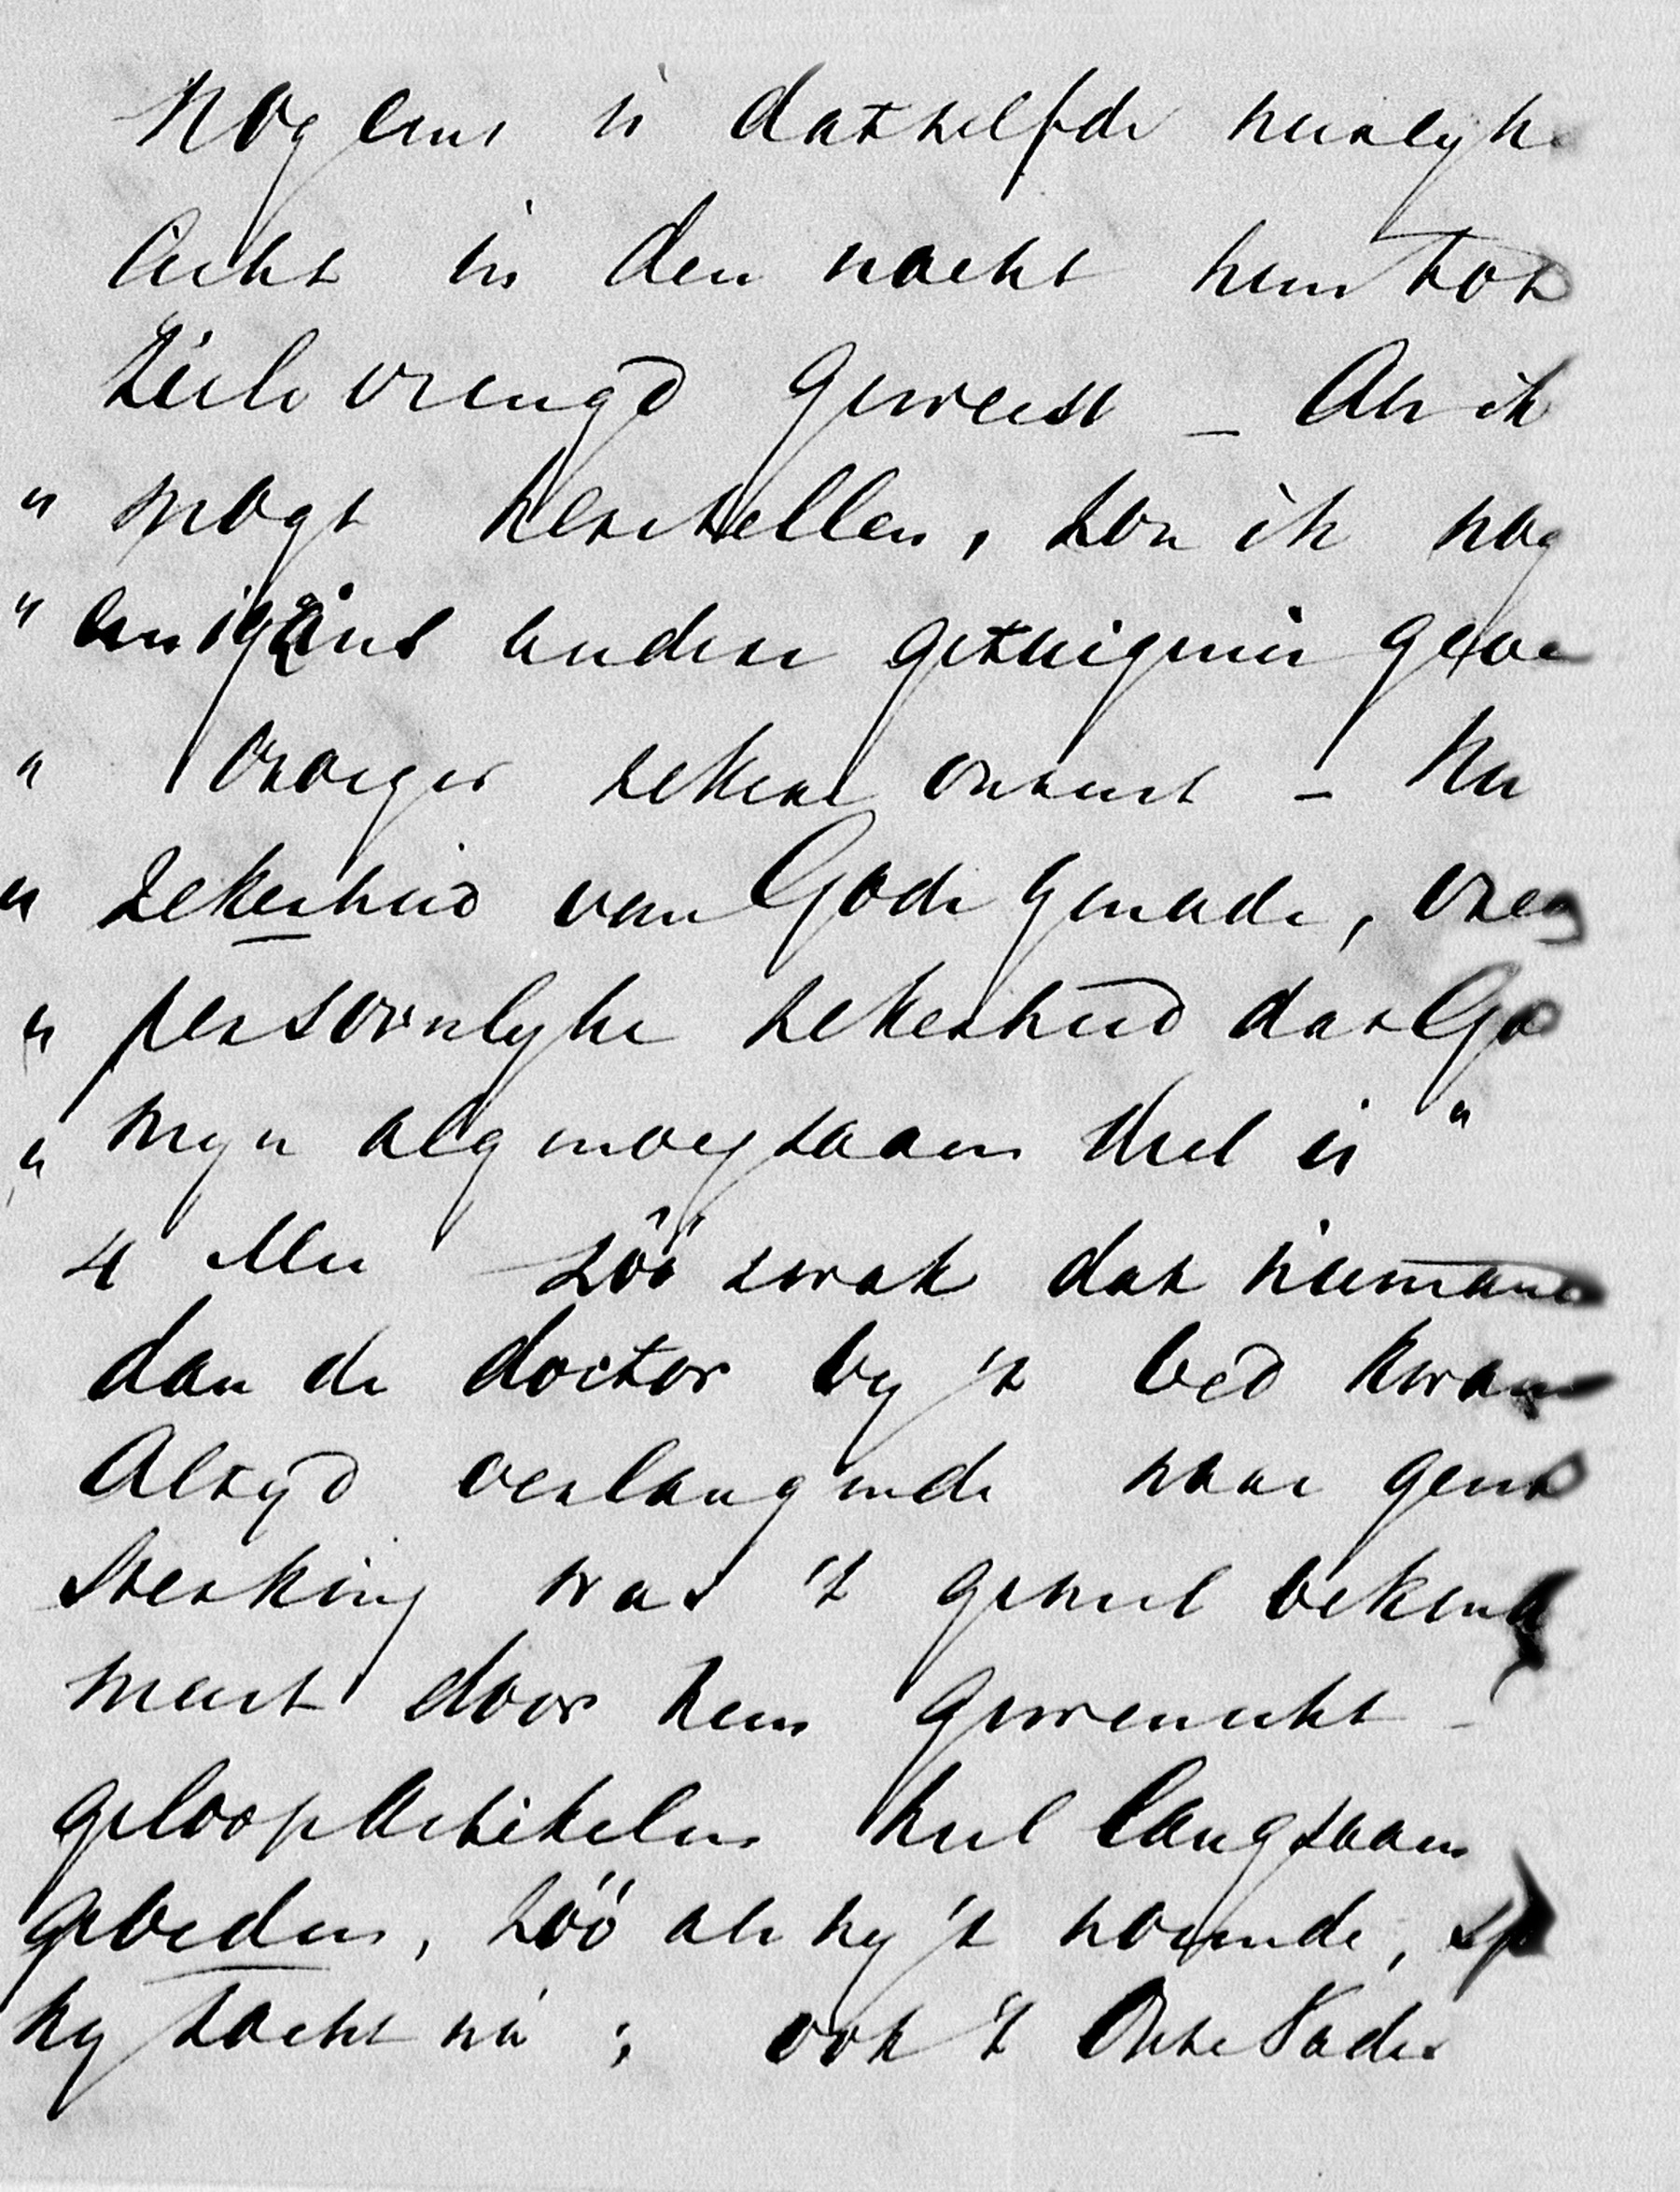 Nog eens is datzelfde heerlyke
licht in den nacht hem tot
Zielevreugd geweest _ Als ik
" mogt herstellen, zou ik nog
" andere getuigenis geve
" Vroeger zekere onrust _ Nu
" Zekerheid van Gods genade, vroeg
" persoonlyke zekerheid dat God
" myn algenoegzaam deel is "
4 Mei zóó zwak dat niemand
dan de doctor by 't bed kwam
Altyd verlangende naar
Sterking was 't geheel
door hem gewenscht _
geloofsartikelen heel langzaam
gebeden, zóó als hy 't noemde,
hy zacht na ; ook 't Onze Vader